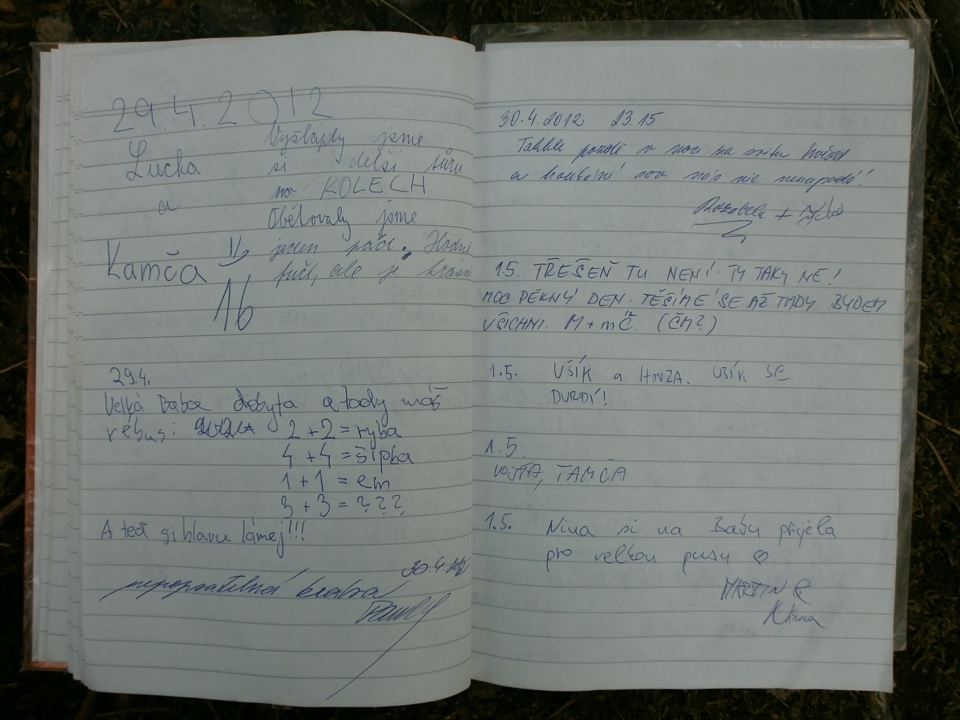 29.4.2012
Lucka
a
Kamča
Vyšlaply jsme
si delší túru
na KOLECH
Obětovaly jsme
jeden
fučí, ale je
16
29.4.
Velká Baba dobyta a tady máš
rébus: 2+2=ryba
4+4=šipka
1+1=em
3+3=???
A teď si hlavu lámej!!!
30.4.
nepopsatelná krása
30.4.2012 23.15
Takhle pozdě v noci na
a nás nic
+
1.5. TŘEŠEŇ TU NENÍ. TY TAKY NE!
MOC PĚKNÝ DEN. TĚŠÍME SE AŽ TADY BUDEM
VŠICHNI. M+MČ. (ČM?)
1.5. UŠÍK a HONZA. UŠÍK SE
DURDÍ!
1.5.
VOJTA, ŤAMČA
1.5. Nina si na Babu přijela
pro velkou pusu ♡
MARTIN &
Nina